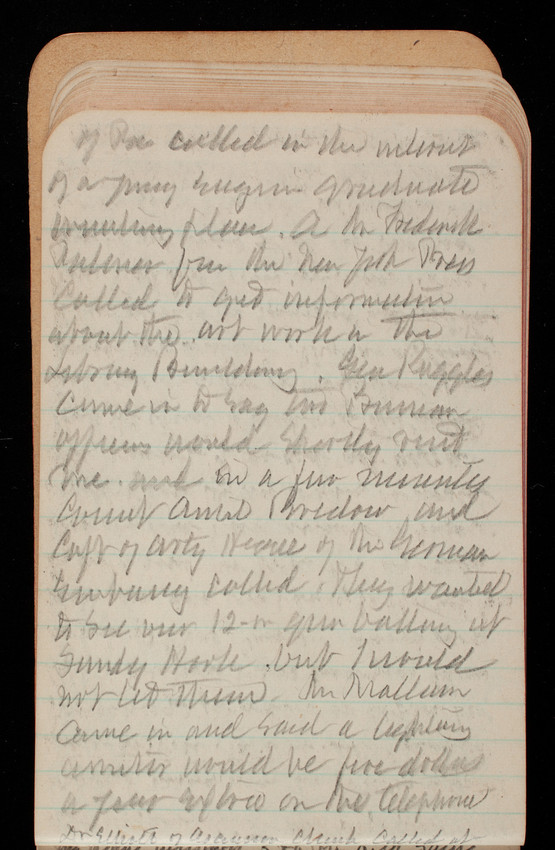 of Pa called in the interest
of a young Eugene graduate
wanting place. A Mr Frederick
from the New York Press
Called to get information
about the art work in the
Library Building. Gen Ruggles
came in to say two German
officers would shortly visit
me and in a few minutes
Count Bredow and
Capt of Arty of the German
Embassy called. They wanted
to see our 12-in gun battery at
Sandy Hook but I would
not let them. Mr
came in and said a lightning
arrester would be five dollars
a year extra on the telephone
Dr Elliott of Ascension Church called at